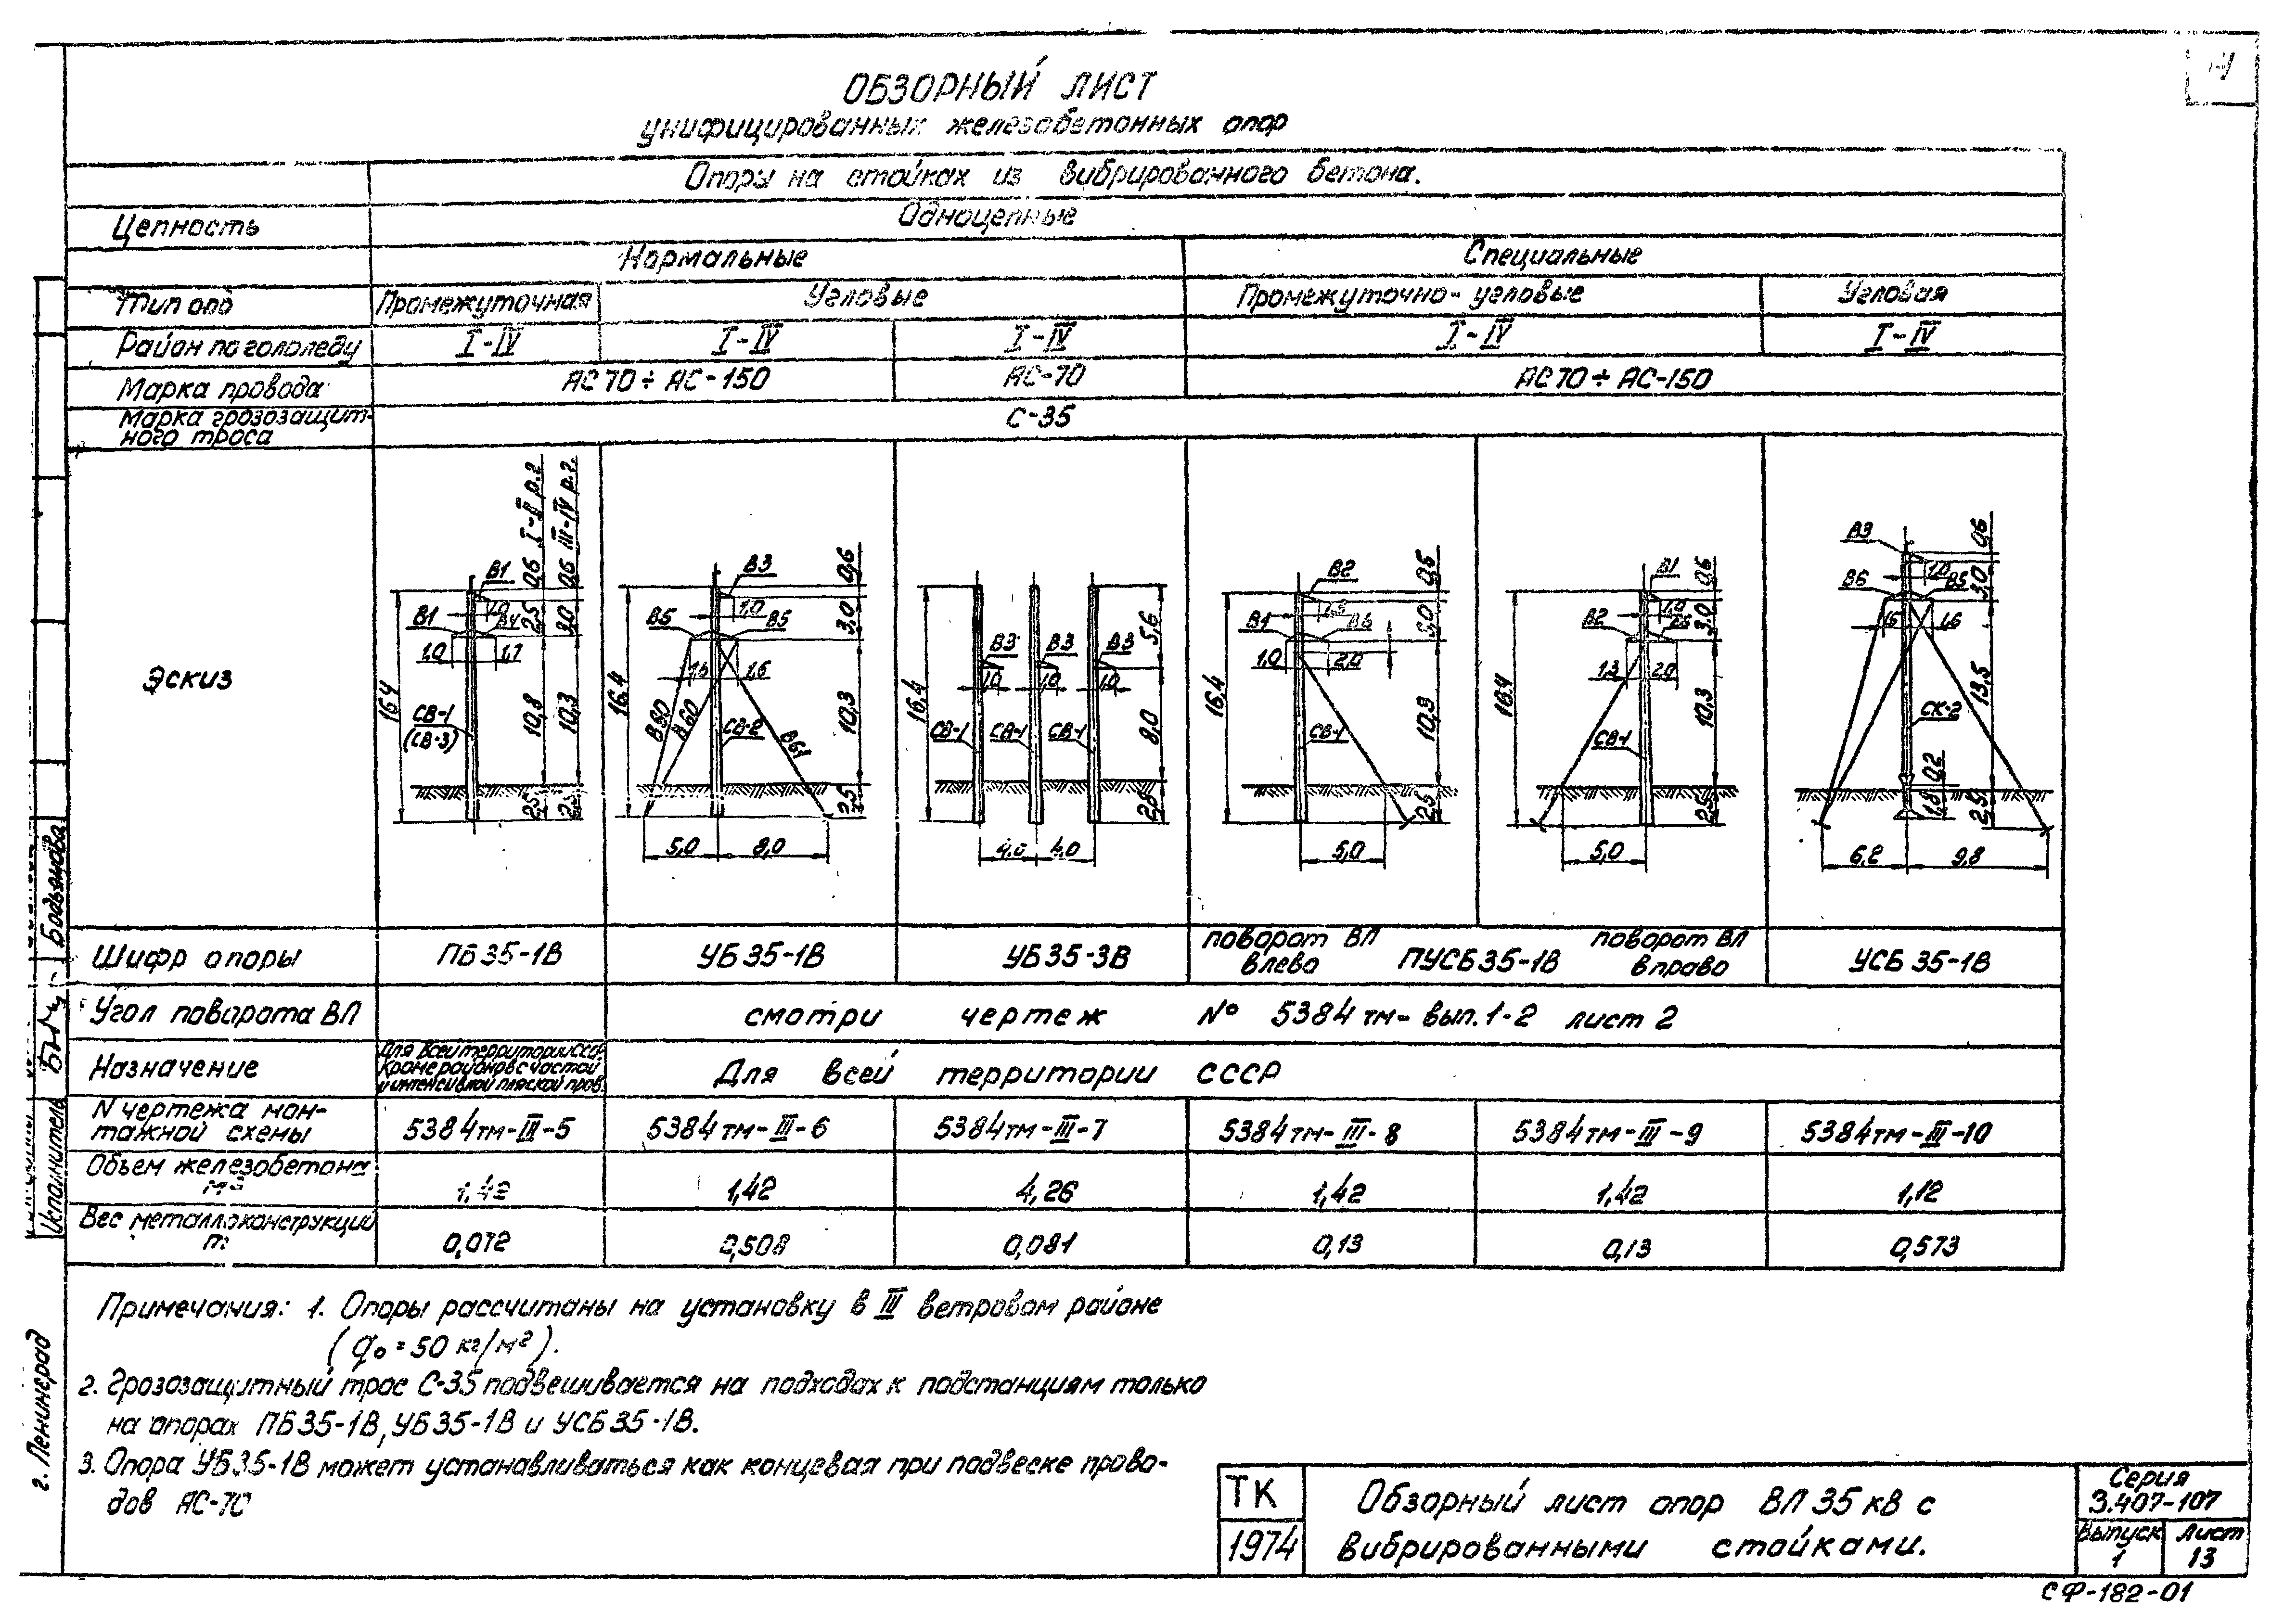 ОБЗОРНЫЙ ЛИСТ
унифицированных железобетонных опор
Опоры на стойках из вибрированного бетона.
Цепность
Одноцепные
Нормальные
Специальные
Тип опо
Промежуточная
Угловые
Промежуточно-угловые
Угловая
Район по гололеду
I-IV
I-IV
I-IV
I-IV
I-IV
Марка провода
АС70÷АС-150
АС-70
АС70÷АС-150
Марка грозозащит-
ного троса
С-35
Эскиз
I-II р.г
III-IV р.г.
0,6
0,6
2,5
3,0
10,8
10,3
2,5
2,5
В1
В1
1,0
1,0
1,7
16,4
СВ-1
(СВ-3)
В3
В5
В5
1,0
1,6
1,6
0,6
3,0
10,3
2,5
16.4
В80
В60
СВ-2
В61
5,0
8,0
16,4
В3
В3
В3
1,0
1,0
1,0
5,6
8,0
2,5
СВ-1
СВ-1
СВ-1
4,0
4,0
16,4
В2
В1
В6
1,0
2,0
10,3
2,5
СВ-1
5,0
16,4
В1
В2
1,0
1,3
2,0
0,6
3,0
10,3
2,5
СВ-1
5,0
В3
В6
В5
1,0
1,6
0,6
3,0
13,5
2,5
СК-2
0,2
1,8
6,2
9,8
Шифр опоры
ПБ35-1В
УБ35-1В
УБ35-3В
поворот ВЛ
влево
ПУСБ35-1В
поворот ВЛ
вправо
УСБ 35-1В
Угол поворота ВЛ
смотри чертеж № 5384тм-вып.1-2 лист 2
Назначение
Для всей территории ССС
Кроме районов с частой
и интенсивной пляской пров.
Для всей территории СССР
N чертежа мон-
тажной схемы
5384тм-III-5
5384тм-III-6
5384тм-III-7
5384тм-III-8
5384тм-III-9
5384тм-III-10
Объем железобетона
м3
1,42
1,42
4,26
1,42
1,42
1,12
Вес металлоконструкций
т
0,072
0,508
0,081
0,13
0,13
0,573
Примечания: 1. Опоры рассчитаны на установку в III ветровом районе
(q₀=50 кг/м²).
2. Грозозащитный трос С-35 подвешивается на подходах к подстанциям только
на опорах ПБ35-1В, УБ35-1В и УСБ35-1В.
3. Опора УБ35-1В может устанавливаться как концевая при подвеске прово-
дов АС-70
ТК
1974
Обзорный лист опор ВЛ 35 кв с
вибрированными стойками.
Серия
3.407-107
Выпуск
1
Лист
13
СФ-182-01
Бодьянова
Исполнитель
г. Ленинград